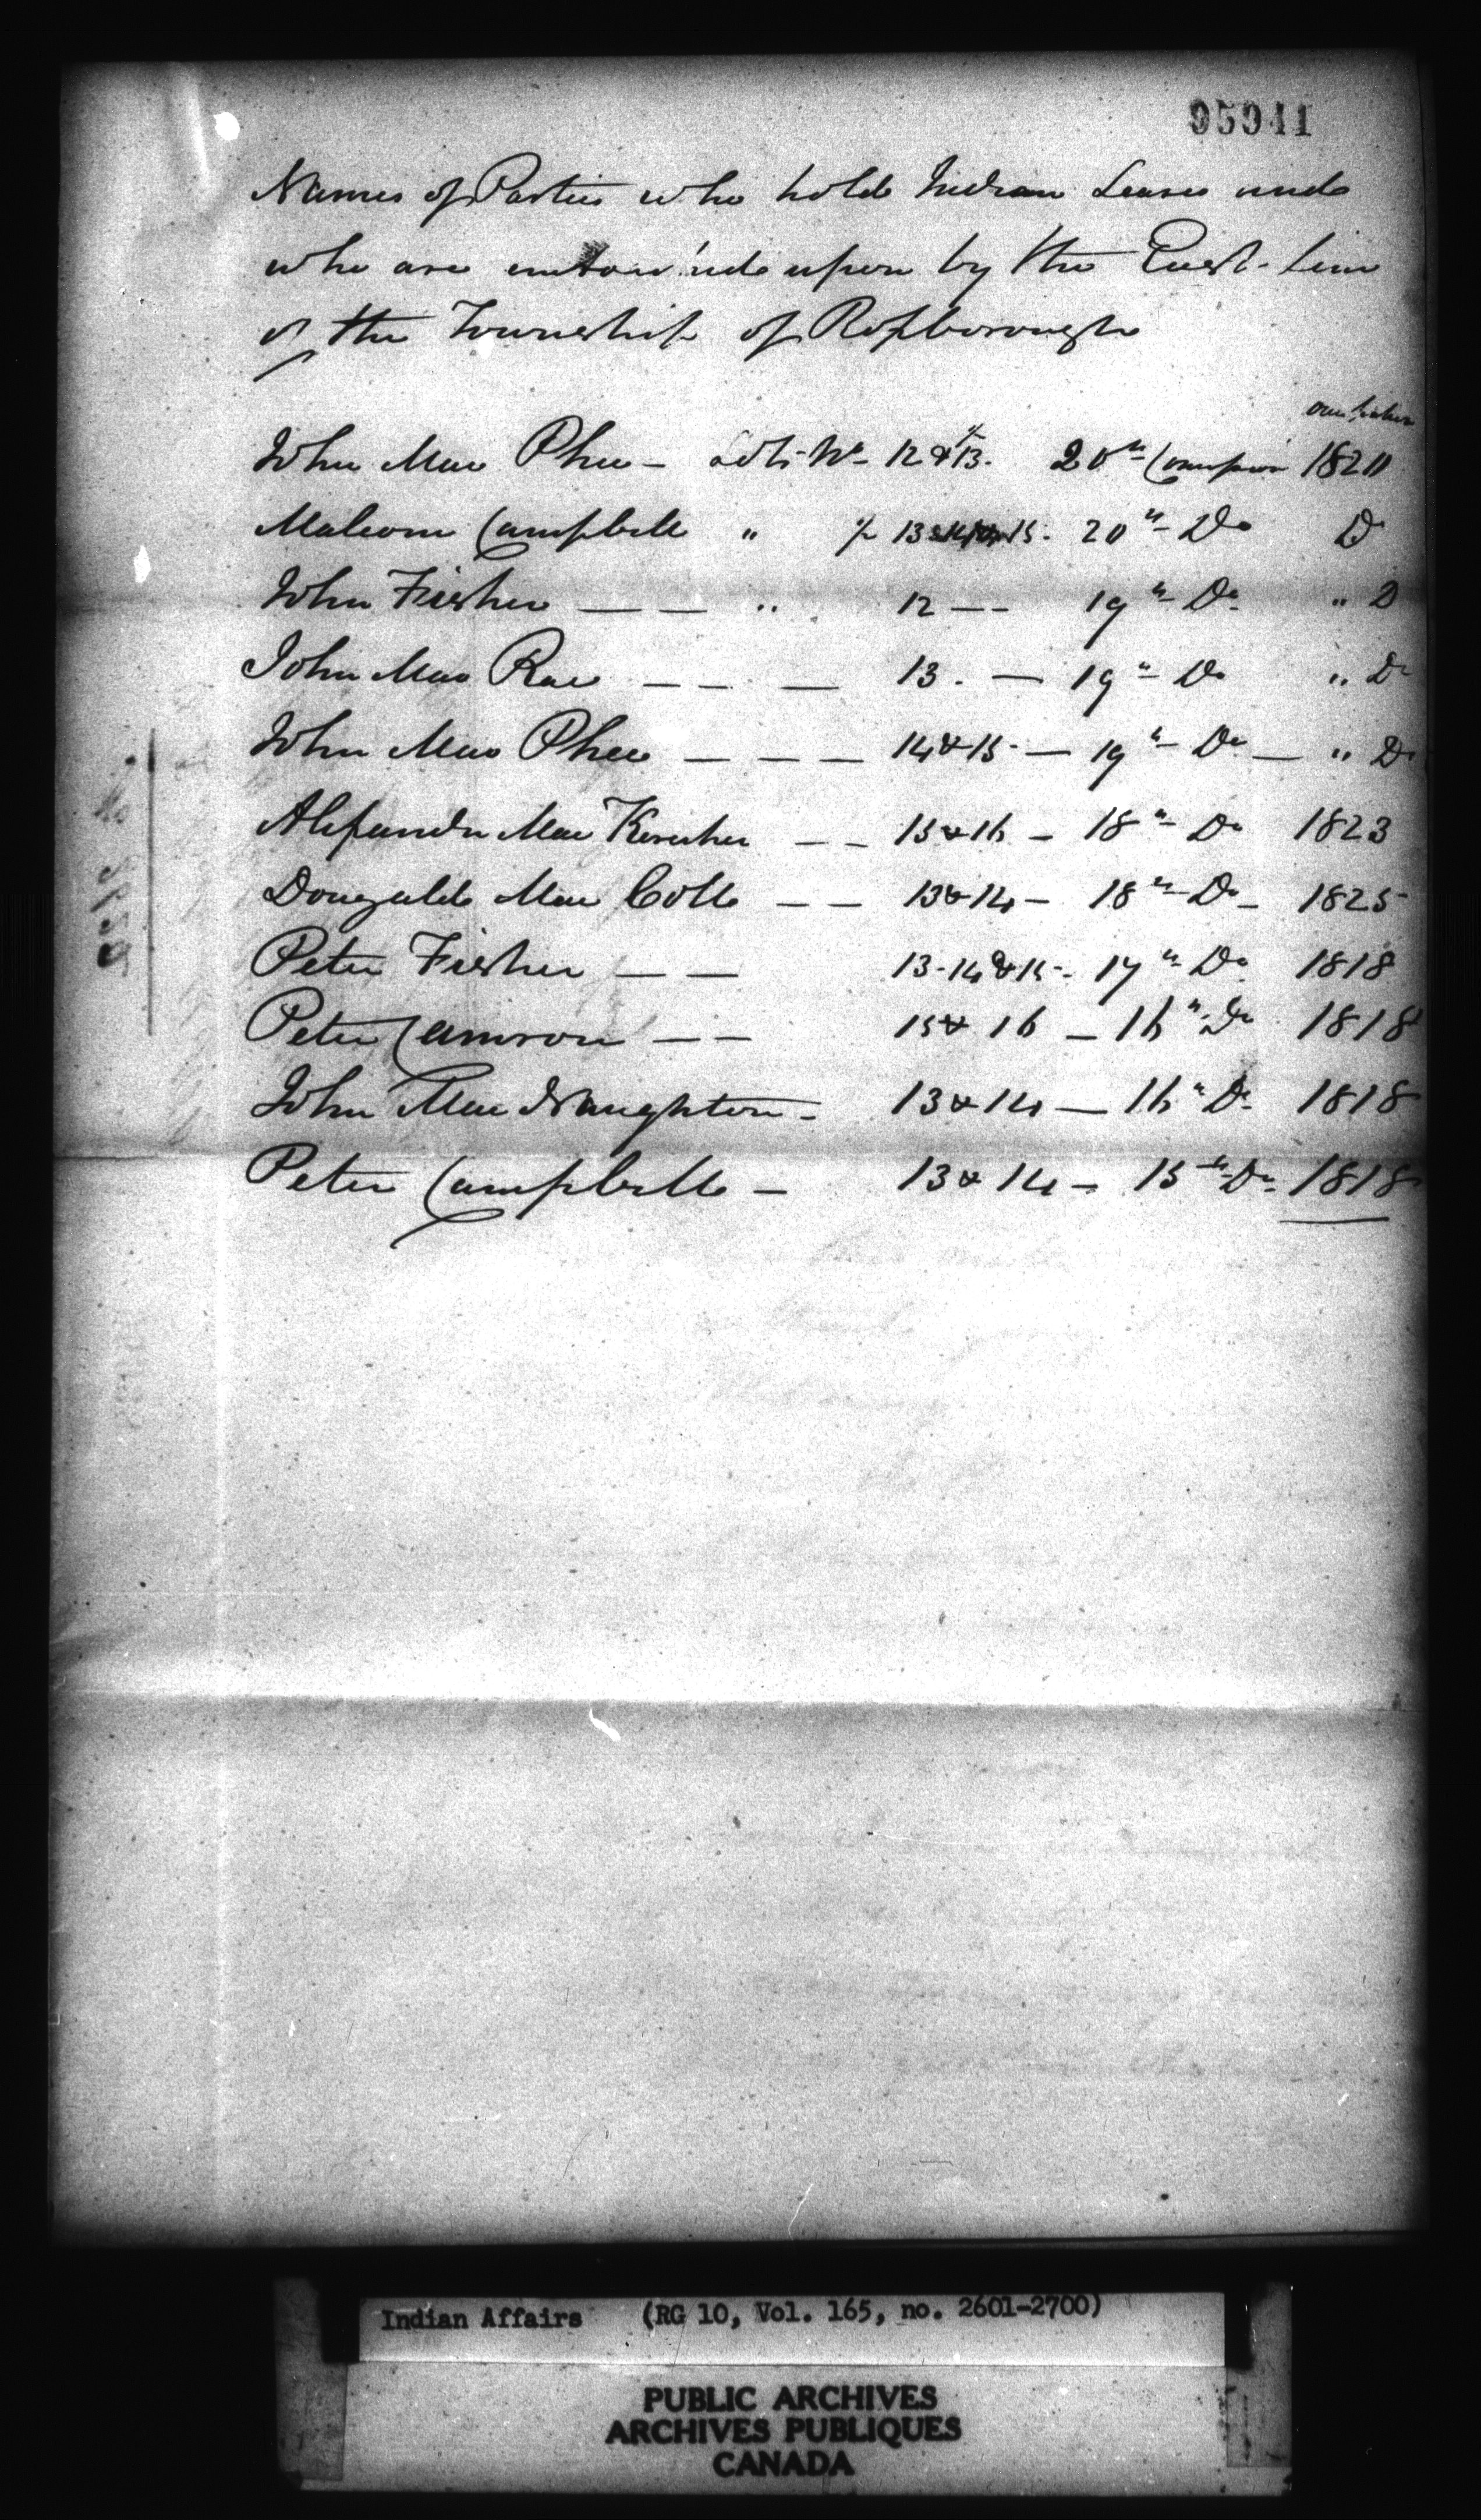 95941
Names of Parties who hold Indian Leases and
who are intowin'd upon by the East line
of the Township of Roxborough
John Mac Phee - Lots No 12 & ½ 13. 20th Concession 1820
Malcom Campbell " ½ 13 15. 20th Do Do
John Fisher — — " 12 — 19th Do " Do
John Mac Rae — — — 13. — 19th Do " Do
John Mac Phee — — — 14 & 15 — 19th Do — " Do
Alexander Mac Kercher — — 15 & 16 — 18th Do 1823
Dougald Mac Coll — — 13 & 14 — 18th Do — 1825
Peter Fisher — — 13-14 & 15 - 17th Do 1818
Peter Camron — — 15 & 16 — 16th Do 1818
John Mac Naughton - 13 & 14 — 16th Do 1818
Peter Campbell — 13 & 14 — 15th Do 1818
Indian Affairs (RG 10, Vol. 165, no. 2601-2700)
PUBLIC ARCHIVES
ARCHIVES PUBLIQUES
CANADA